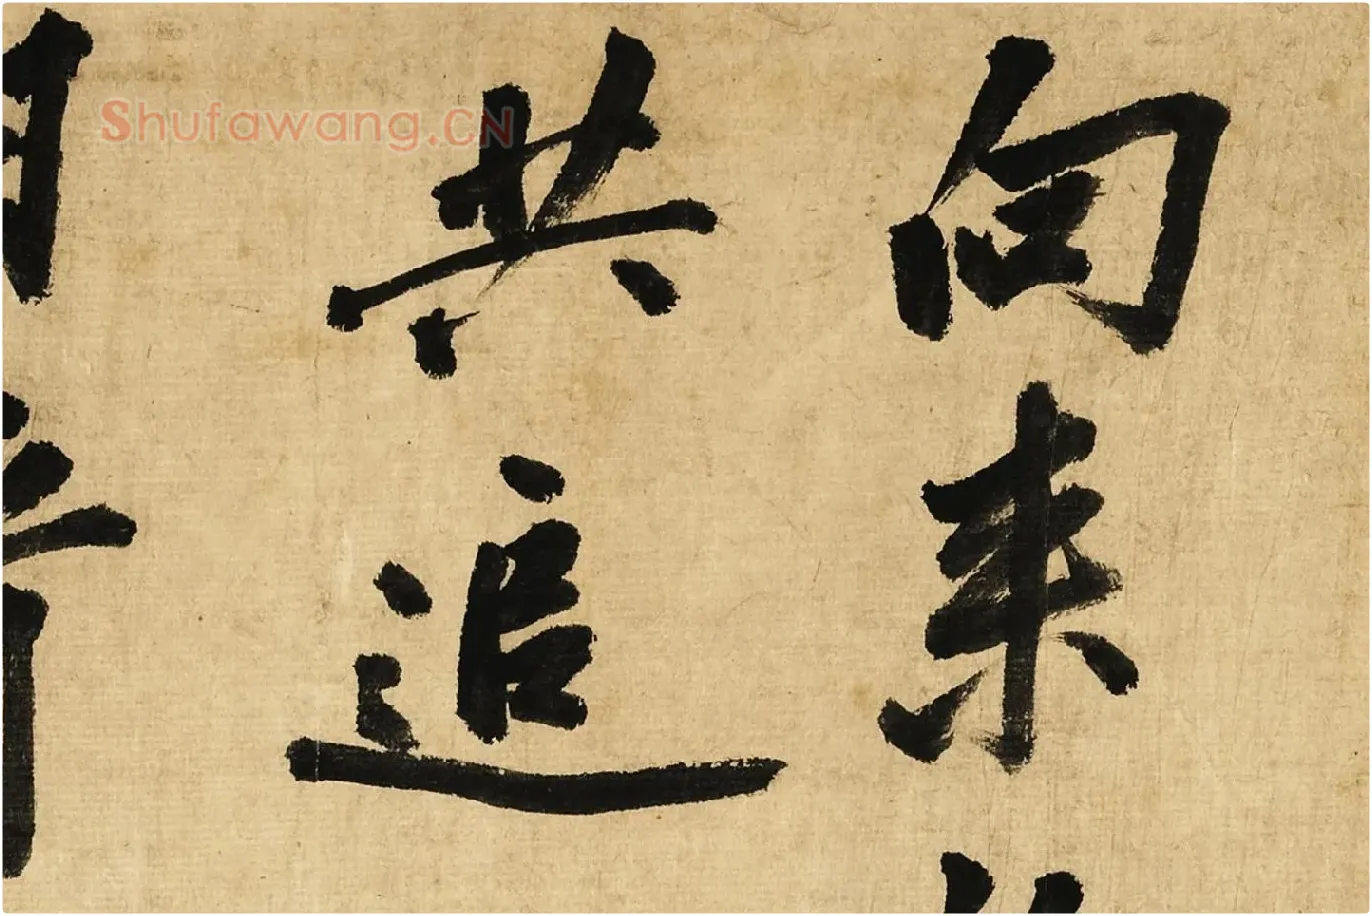 向来
共追
Shufawang.CN